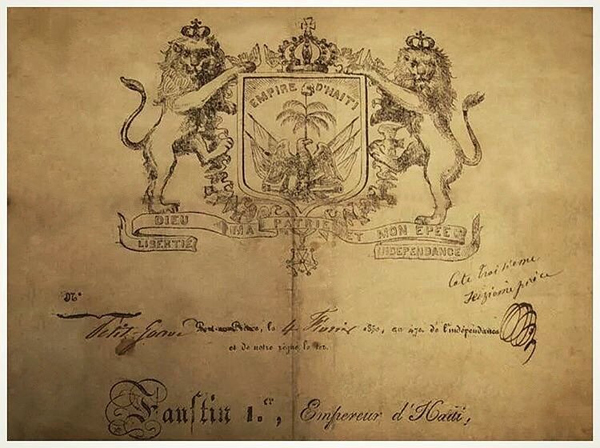 EMPIRE D'HAITI
DIEU MA PATRIE ET MON EPEE
LIBERTIÉ INDEPENDANCE
Cote troisieme
Seizieme pièce
N°
Petit-Goave Port-au-Prince, le 4 Février 1850, an 47e. de l'indépendance
et de notre règne le 1er.
Faustin 1.er, Empereur d'Haïti,